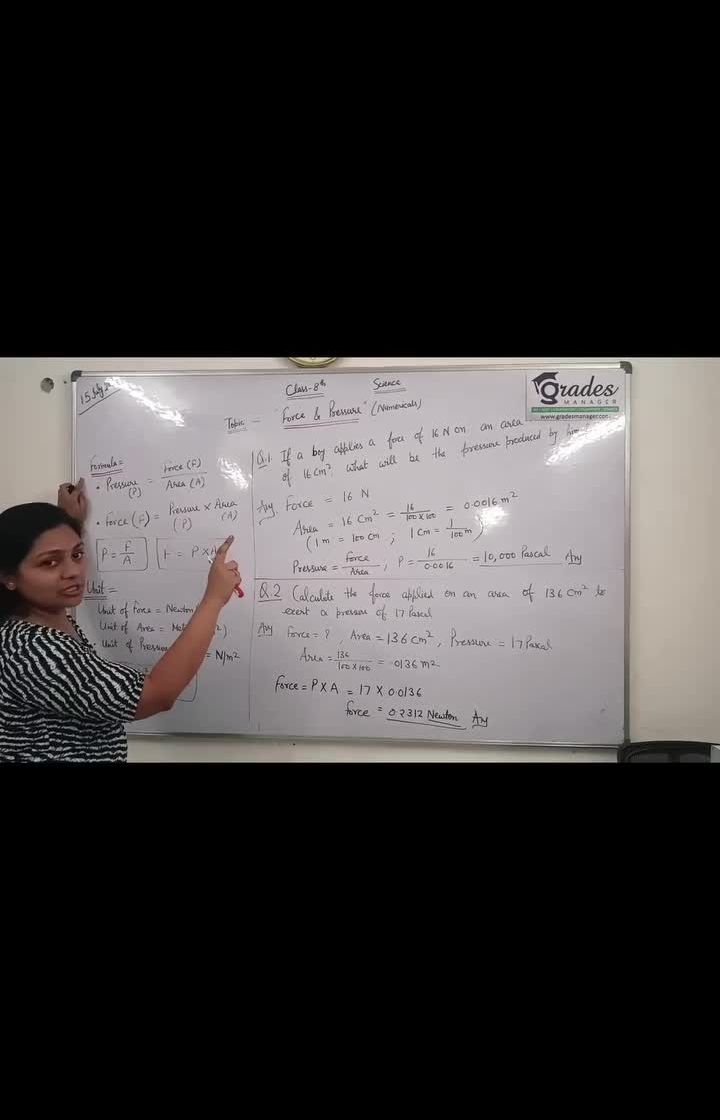 15 July
Class-8th Science
Topic - "Force & Pressure" (Numericals)
GRADES
MANAGER
www.gradesmanager.com
Formula =
• Pressure (P) = Force (F) / Area (A)
• Force (F) = Pressure (P) × Area (A)
P = F/A F = P × A
Unit =
Unit of Force = Newton
Unit of Area =
Unit of = N/m²
Q.1. If a boy applies a force of 16 N on an area
of 16 cm², what will be the pressure produced by
Ans. Force = 16 N
Area = 16 cm² = 16 / 100×100 = 0.0016 m²
(1 m = 100 cm ; 1 cm = 1/100 m)
Pressure = Force / Area , P = 16 / 0.0016 = 10,000 Pascal Ans
Q.2 Calculate the force applied on an area of 136 cm² to
exert a pressure of 17 Pascal
Ans Force = ? , Area = 136 cm², Pressure = 17 Pascal
Area = 136 / 100×100 = .0136 m²
Force = P × A = 17 × 0.0136
Force = 0.2312 Newton Ans